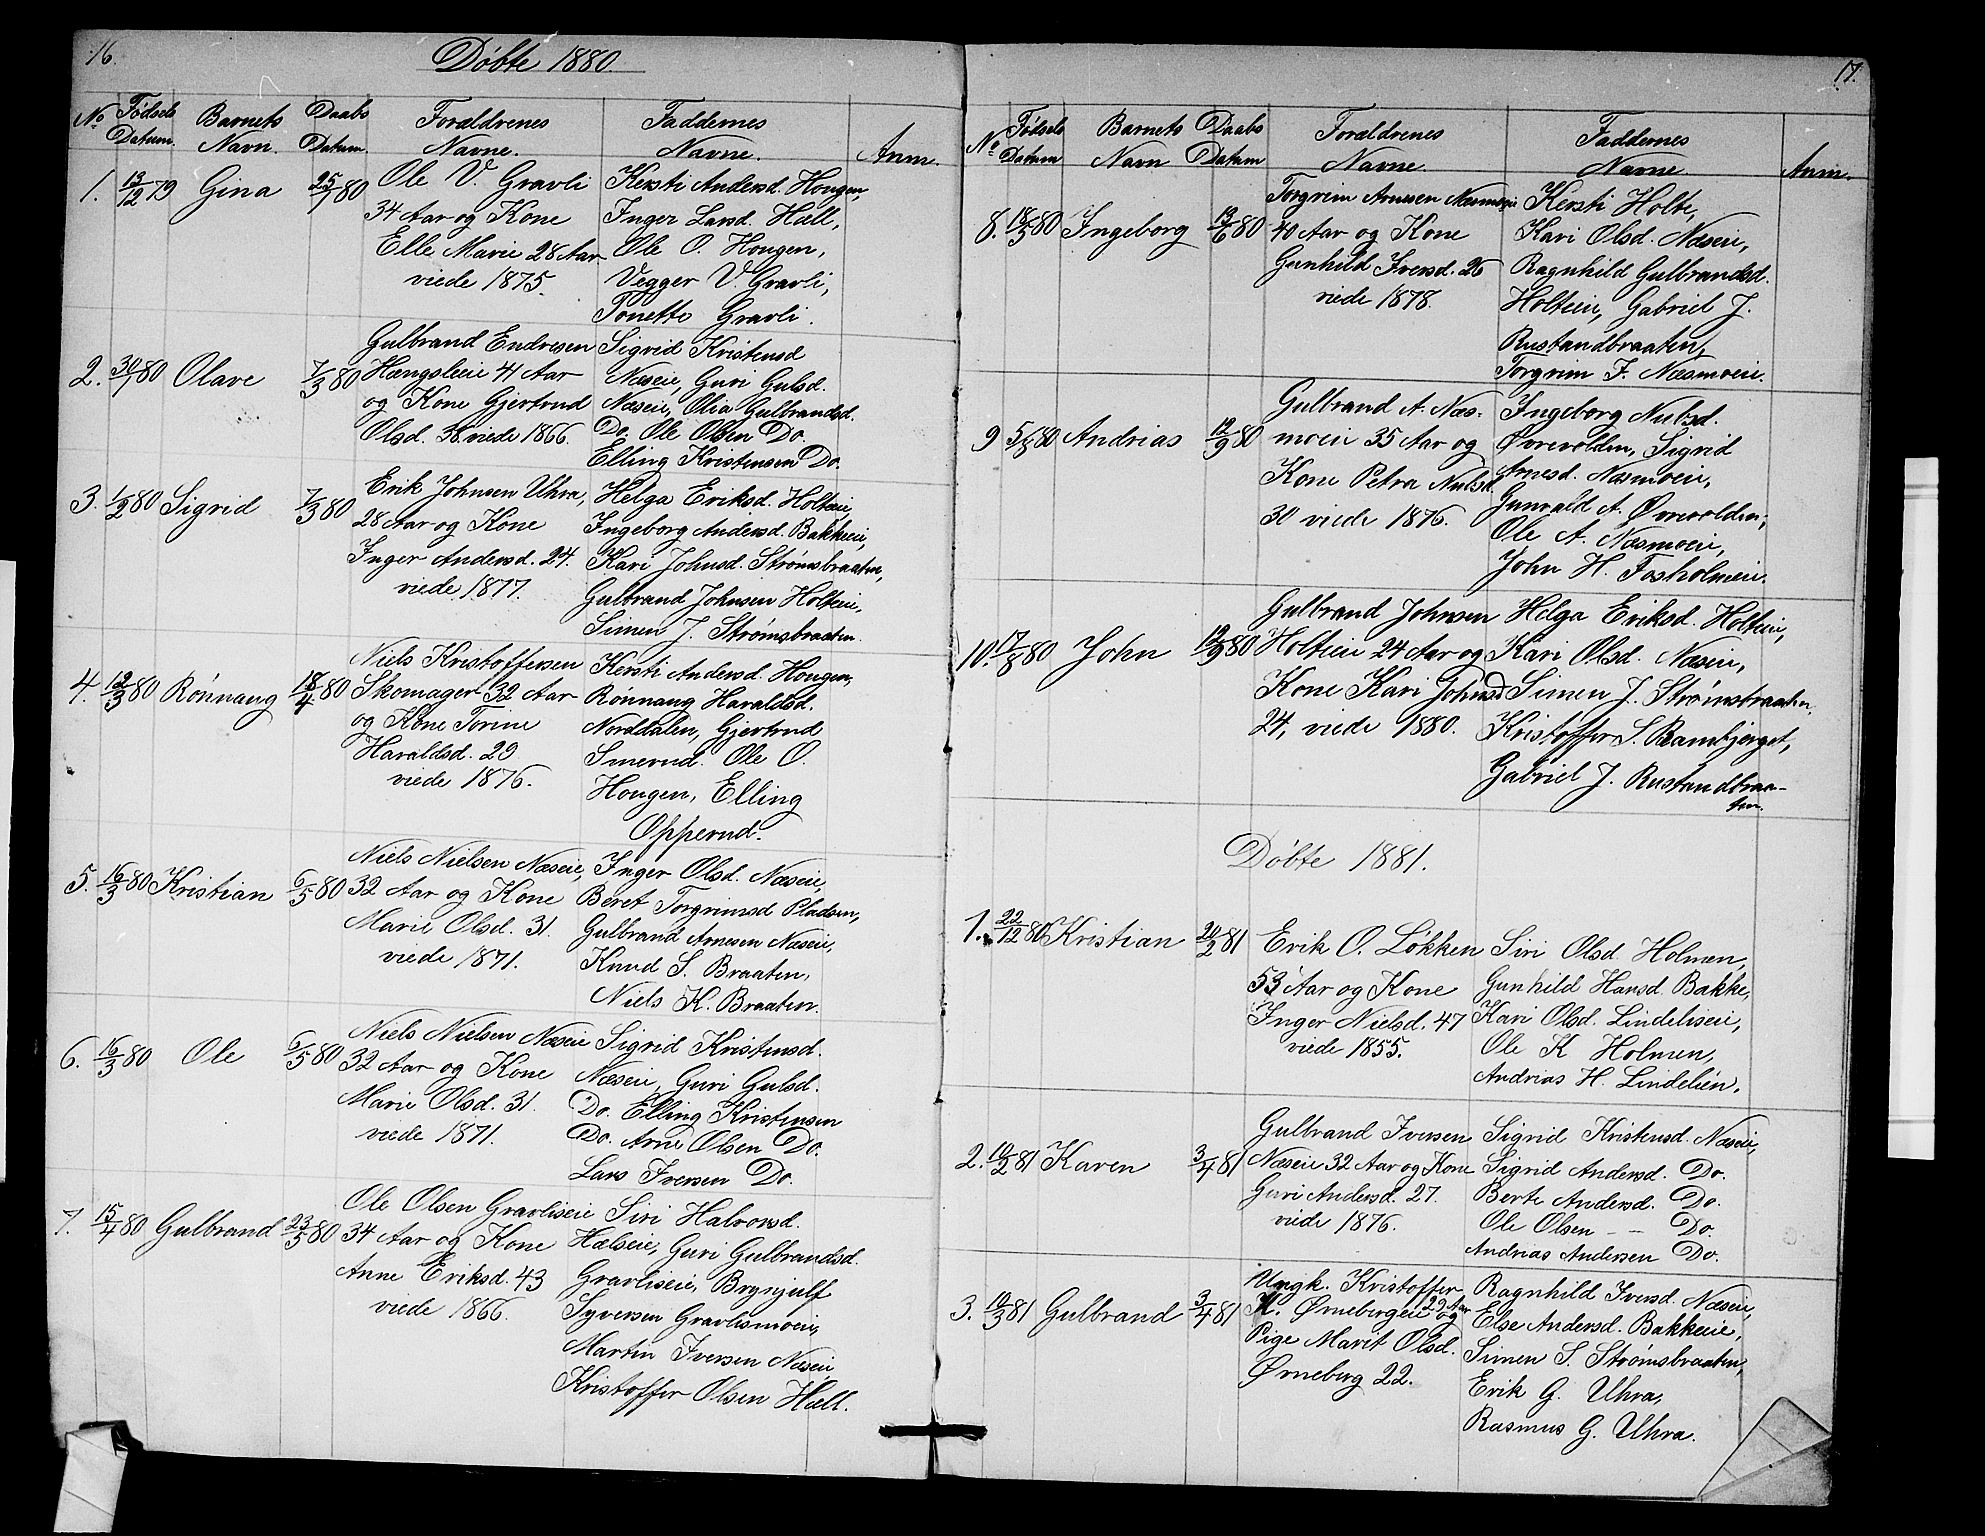 16.
Döbte 1880.
No Födsels Datum. Barnets Navn. Daabs Datum. Forældrenes Navne. Faddernes Navne. Anm.
1. 13/12 79 Gina 25/1 80
Ole V. Gravli
34 Aar og Kone
Elle Marie 28 Aar
viede 1875.
Kersti Andersd. Hougen,
Inger Larsd. Hæll,
Ole O. Hougen,
Vegger V. Gravli,
Tonette Gravli.
2. 30/1 80 Olave 7/3 80
Gulbrand Endresen
Hængsleeie 41 Aar
og Kone Gjertrud
Olsd. 38 viede 1866.
Sigrid Kristensd
Næseie, Guri Gulsd.
Næseie, Olia Gulbrandsd.
Do. Ole Olsen Do.
Elling Kristensen Do.
3. 1/2 80 Sigrid 7/3 80
Erik Johnsen Uhra,
28 Aar og Kone
Inger Andersd. 24.
viede 1877.
Helga Eriksd. Holteie,
Ingeborg Andersd. Bakkeeie,
Kari Johnsd. Strömsbraaten,
Gulbrand Johnsen Holteie,
Simen J. Strömsbraaten.
4. 12/3 80 Rönnaug 18/4 80
Niels Kristoffersen
Skomager 32 Aar
og Kone Torine
Haraldsd. 29
viede 1876.
Kersti Andersd. Hougen,
Rönnaug Haraldsd.
Norddalen, Gjertrud
Smerud. Ole O.
Hougen, Elling
Opperud.
5. 16/3 80 Kristian 6/5 80
Niels Nielsen Næseie,
32 Aar og Kone
Marie Olsd. 31.
viede 1871.
Inger Olsd. Næseie,
Beret Torgrimsd Pladsen,
Gulbrand Arnesen Næseie,
Knud S. Braaten,
Niels K. Braaten.
6. 16/3 80 Ole 6/5 80
Niels Nielsen Næseie
32 Aar og Kone
Marie Olsd. 31.
viede 1871.
Sigrid Kristensd.
Næseie, Guri Gulsd.
Do. Elling Kristensen
Do. Arne Olsen Do.
Lars Iversen Do.
7. 15/4 80 Gulbrand 23/5 80
Ole Olsen Gravliseie
34 Aar og Kone
Anne Eriksd. 43
viede 1866.
Siri Halvorsd.
Hælseie, Guri Gulbrandsd.
Gravliseie, Brynjulf
Syversen Gravlismoeie,
Martin Iversen Næseie
Kristoffer Olsen Hæll.
17.
No Födsels Datum Barnets Navn Daabs Datum Forældrenes Navne. Faddernes Navne Anm.
8. 18/5 80 Ingeborg 13/6 80
Torgrim Arnesen Næsmoeie
40 Aar og Kone
Gunhild Iversd. 26
viede 1878
Kersti Holte,
Kari Olsd. Næseie,
Ragnhild Gulbrandsd.
Holteeie, Gabriel J.
Rustandbraaten,
Torgrim F. Næsmoeie.
9 5/8 80 Andrias 12/9 80
Gulbrand A. Næs-
moeie 35 Aar og
Kone Petra Nubsd.
30 viede 1876.
Ingeborg Nubsd.
Øvrevolden, Sigrid
Arnesd. Næsmoeie,
Gunvald A. Øvrevolden,
Ole A. Næsmoeie,
John H. Fosholmeie.
10. 17/8 80 John 12/9 80
Gulbrand Johnsen
Holteie 24 Aar og
Kone Kari Johnsd
24, viede 1880.
Helga Eriksd. Holteie,
Kari Olsd. Næseie,
Simen J. Strömsbraaten.
Kristoffer S. Rambjerget,
Gabriel J. Rustandbraa-
ten.
Döbte 1881.
1. 22/12 80 Kristian 20/2 81
Erik O. Lökken
53 Aar og Kone
Inger Nielsd. 47
viede 1855.
Siri Olsd Holmen,
Gunhild Hansd. Bakke,
Kari Olsd. Lindeliseie,
Ole K Holmen,
Andrias H. Lindelien.
2. 10/2 81 Karen 3/4 81
Gulbrand Iversen
Næseie 32 Aar og Kone
Guri Andersd. 27.
viede 1876.
Sigrid Kristensd. Næseie,
Sigrid Andersd. Do.
Berte Andersd. Do.
Ole Olsen - - Do.
Andrias Andersen Do.
3. 10/3 81 Gulbrand 3/4 81
Ungk. Kristoffer
K. Ørnebergeie 29 Aar og
Pige Marit Olsd.
Ørneberg 22.
Ragnhild Iversd. Næseie,
Else Andersd. Bakkeeie,
Simen S. Strömsbraaten,
Erik G. Uhra,
Rasmus G. Uhra.